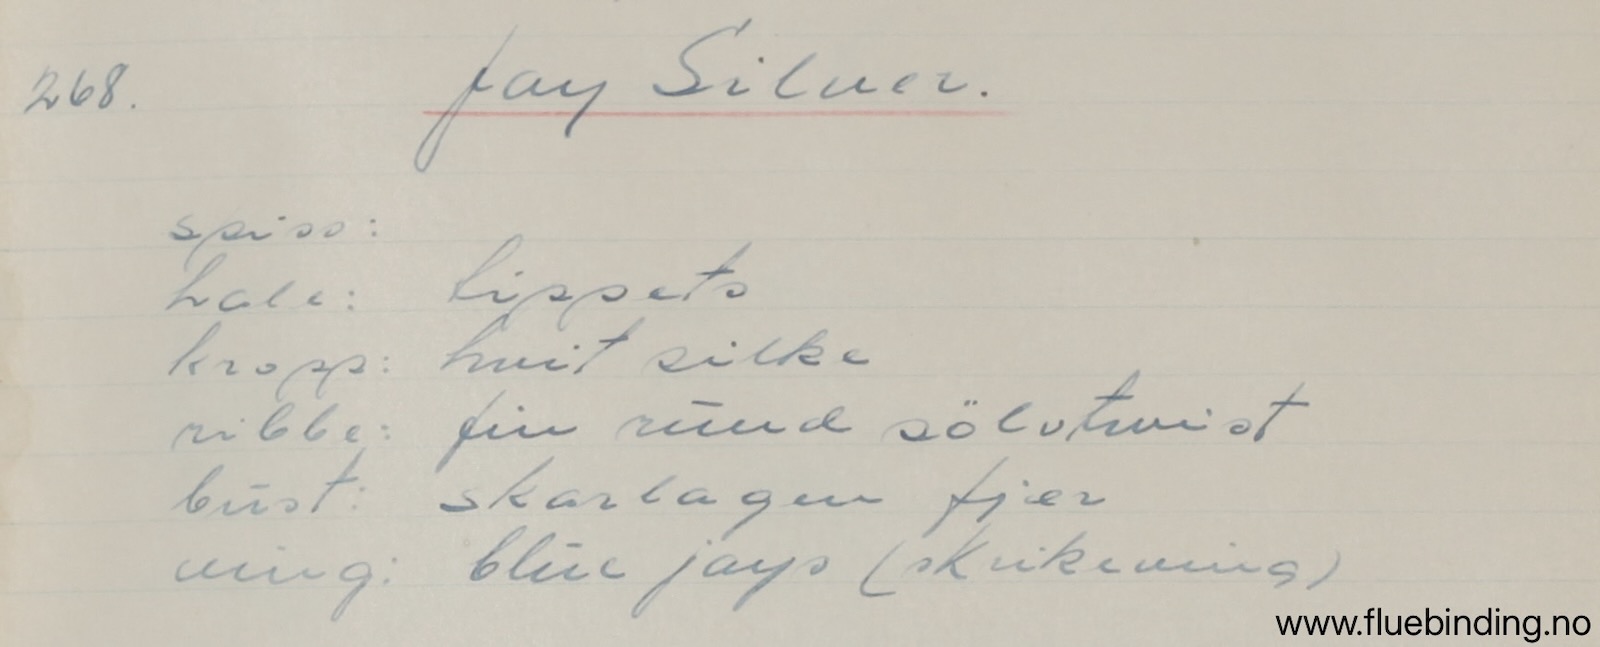 268. Jay Silver.
spiss:
hale: tippets
kropp: hvit silke
ribbe: fin rund sölvtwist
bust: skarlagen fjer
ving: blue jays (skrikeving)
www.fluebinding.no